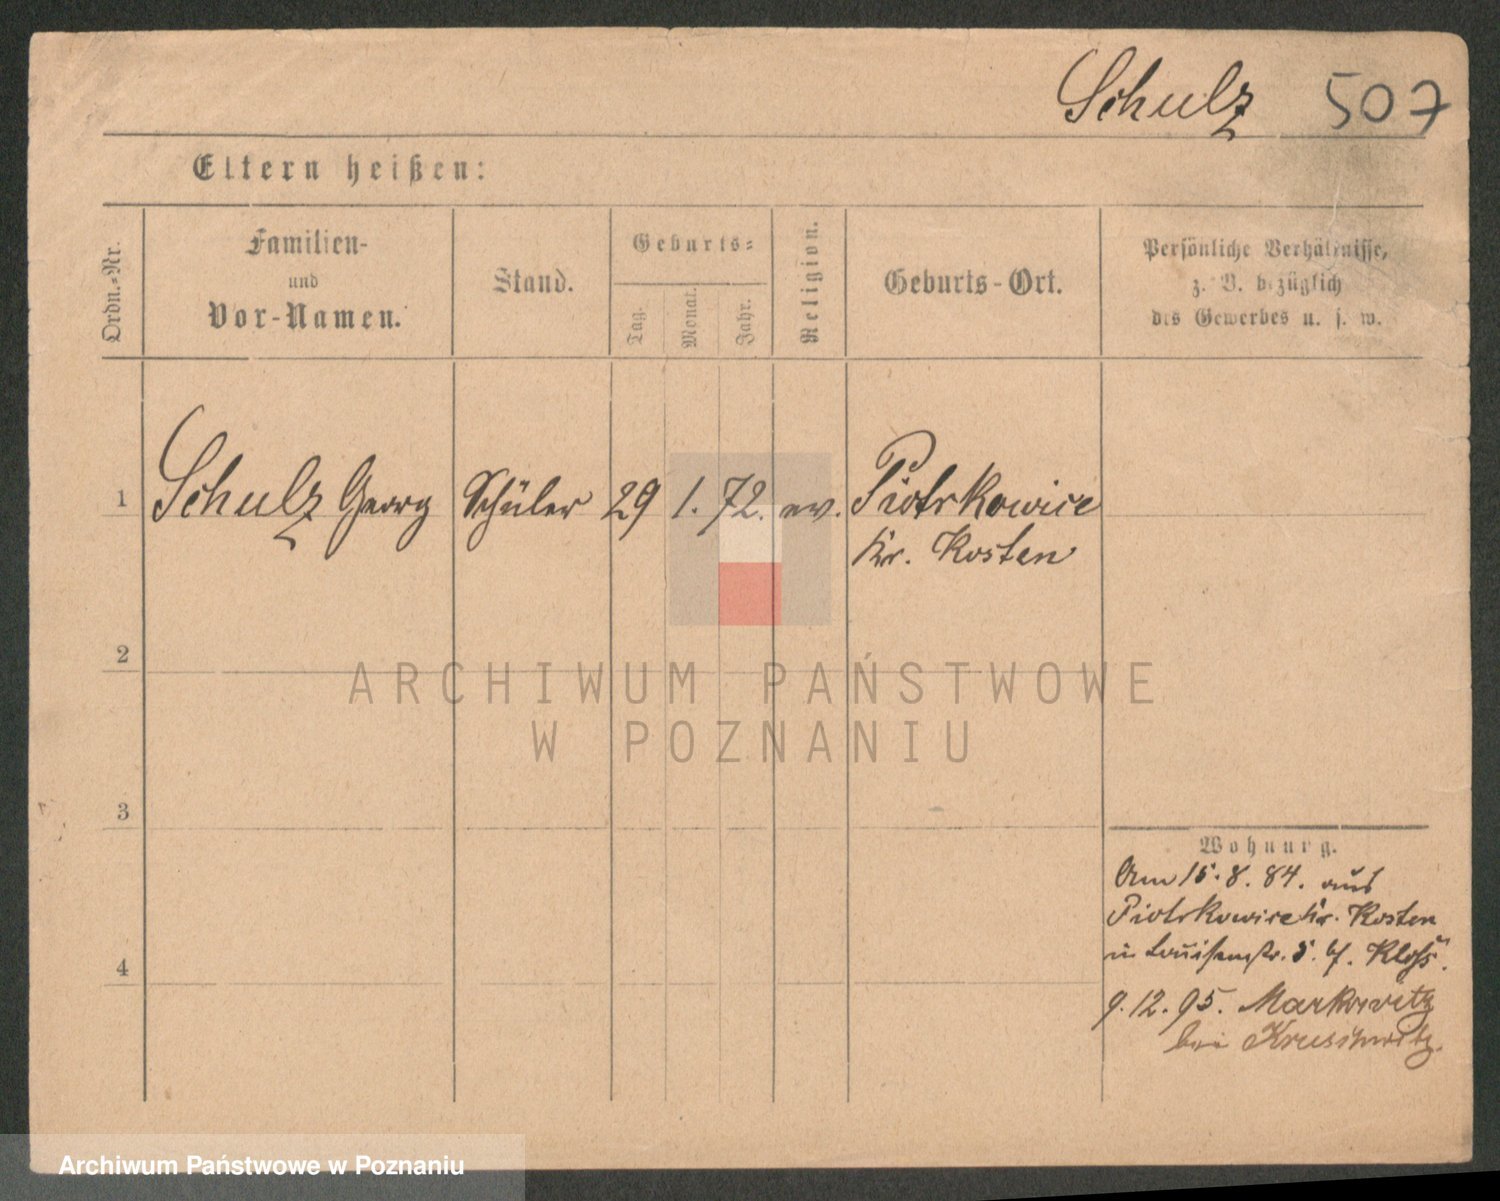 Schulz 507
Eltern heißen:
Ordn.-Nr.
Familien-
und
Vor-Namen.
Stand.
Geburts-
Tag.
Monat.
Jahr.
Religion.
Geburts-Ort.
Persönliche Verhältnisse,
z. B. bezüglich
des Gewerbes u. s. w.
1 Schulz Georg Schüler 29 1. 72. ev. Piotrkowice
Kr. Kosten
2
3
4
Wohnung.
Am 15.8.84. aus
Piotrkowice Kr. Kosten
n Louisenstr. 5. bf. Kloß.
9.12.95. Markowitz
bei Kruschwitz.
ARCHIWUM PAŃSTWOWE
W POZNANIU
Archiwum Państwowe w Poznaniu